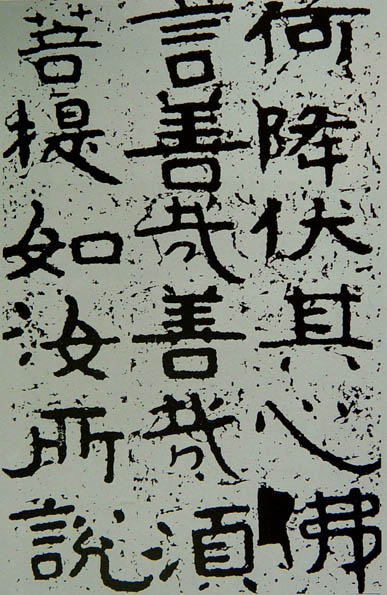 何降伏其心佛
言善哉善哉須
菩提如汝所說